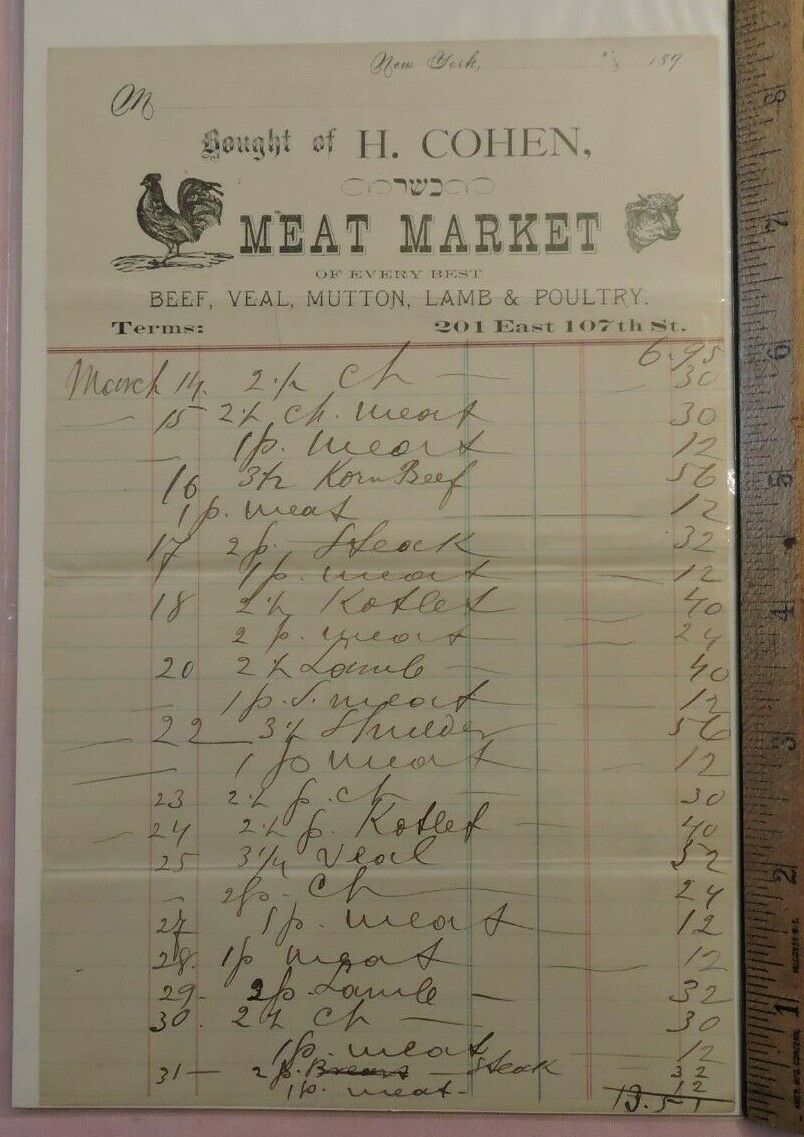 New York, 189
M
Bought of H. COHEN,
כשר
MEAT MARKET
OF EVERY BEST
BEEF, VEAL, MUTTON, LAMB & POULTRY.
Terms: 201 East 107th St.
6.95
March 14. 2 1/2 Ch — 30
15 2 1/2 Ch. meat 30
1 p. meat 12
16 3 1/2 Korn Beef 56
1 p. meat 12
17 2 p. Steak 32
1 p. meat 12
18 2 1/2 Kotlet 40
2 p. meat 24
20 2 1/2 Lamb 40
1 p. S. meat 12
22 3 1/2 56
1 p meat 12
23 2 1/2 p. ch 30
24 2 1/2 p. Kotlet 40
25 3 1/4 Veal 52
2 p. Ch 24
27 1 p. meat 12
28. 1 p meat 12
29 2 p. Lamb 32
30. 2 1/2 Ch 30
1 p. meat 12
31 — 2 p. Steak 32
1 p. meat 12
13.51
8
7
6
5
4
3
2
1